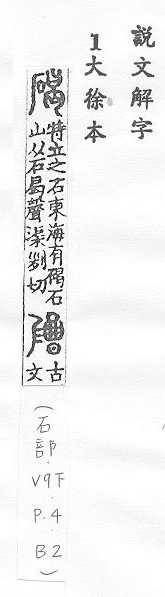 說文解字
1大徐本
碣 特立之石東海有碣石
山从石曷聲渠列切 𥓓 古
文
(石部.V9下.P.4.B2)